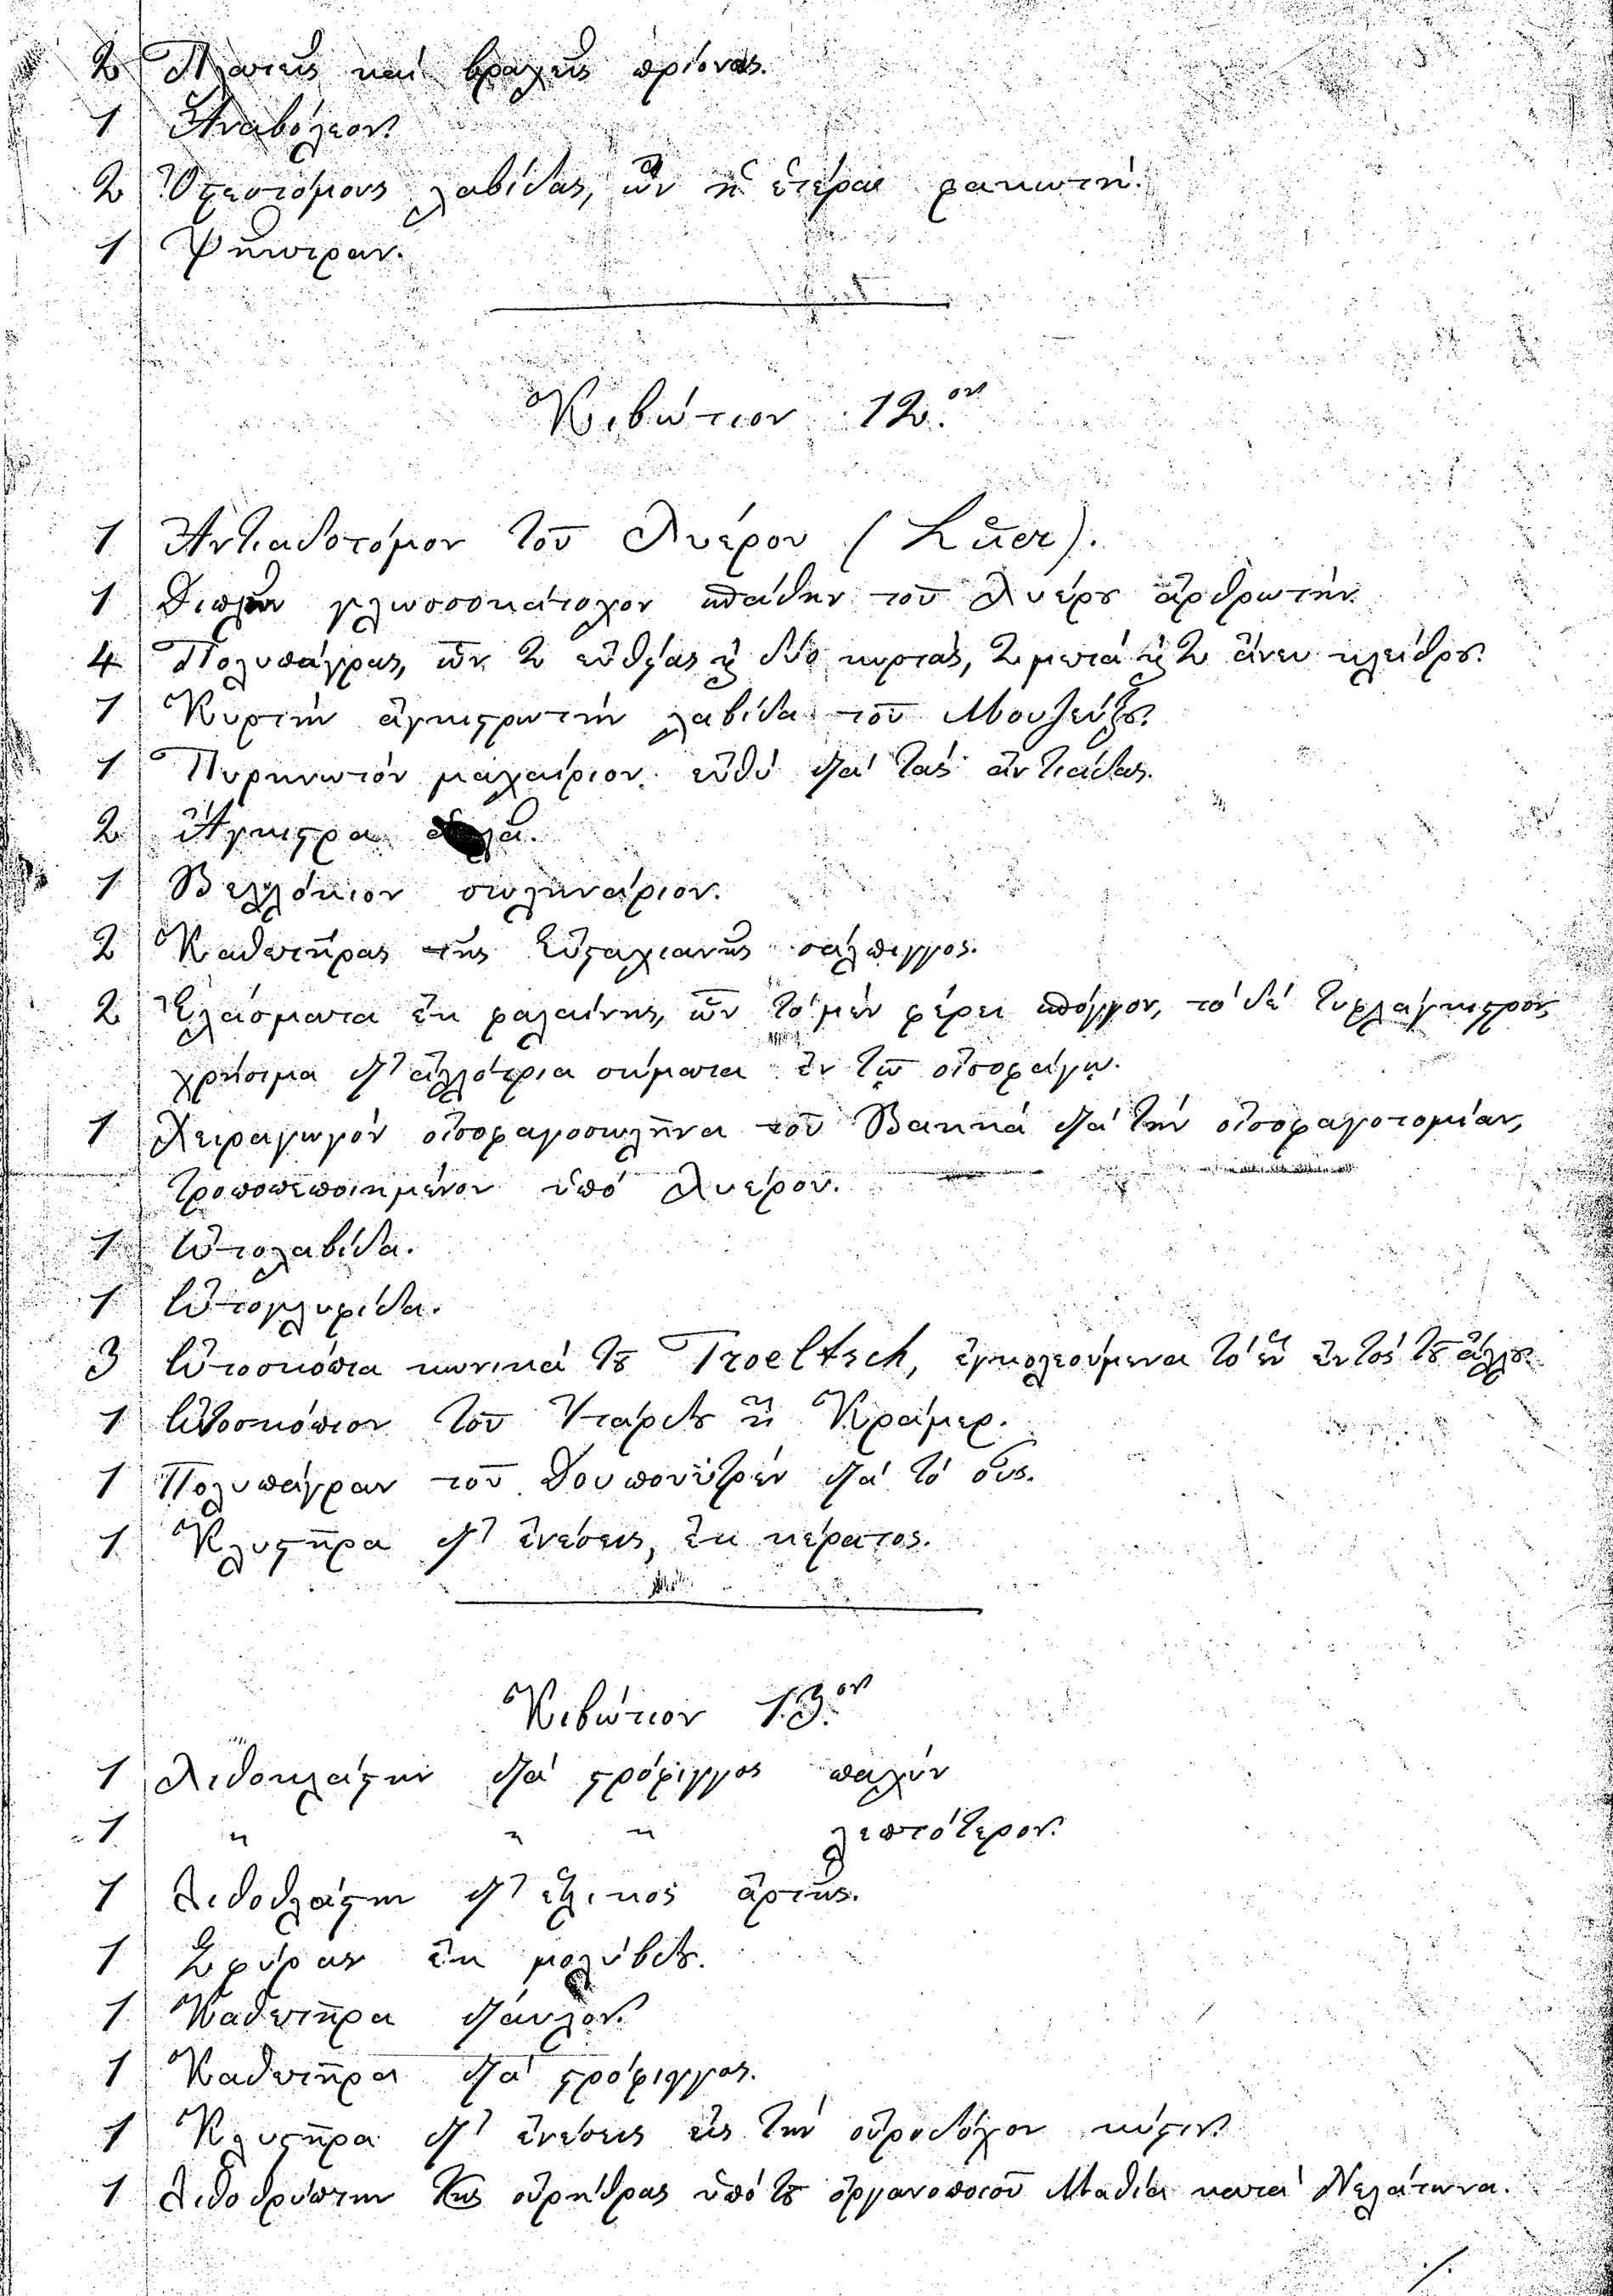 2 Πλατεῖς καὶ βραχεῖς πρίονας.
1 Ἀναβολέον.
2 Ὀστεοτόμους λαβίδας, ὧν ἡ ἑτέρα φακωτή.
1 Ψήκτραν.
Κιβώτιον 12.ον
1 Ἀντιαδοτόμον τοῦ Λυέρου (Lüer).
1 Διπλῆν γλωσσοκάτοχον σπάθην τοῦ Λυέρου ἀρθρωτήν.
4 Πολυπάγρας, ὧν 2 εὐθείας ϗ δύο κυρτάς, 2 μετά ϗ 2 ἄνευ κλείθρου.
1 Κυρτὴν ἀγκιστρωτὴν λαβίδα τοῦ Μουζεύξ.
1 Πυρηνωτόν μαχαίριον εὐθύ διά τάς ἀντιάδας.
2 Ἄγκιστρα
1 Βελλόκιον σωληνάριον.
2 Καθετῆρας τῆς Εὐσταχιανῆς σάλπιγγος.
2 Ἐλάσματα ἐκ φαλαίνης, ὧν τό μέν φέρει σπόγγον, τό δέ τυφλάγκιστρον,
χρήσιμα δι' ἀλλότρια σώματα ἐν τῷ οἰσοφάγῳ.
1 Χειραγωγόν οἰσοφαγοσωλῆνα τοῦ Βακκά διά τήν οἰσοφαγοτομίαν,
τροποπεποιημένον ὑπό Λυέρου.
1 Ὠτολαβίδα.
1 Ὠτογλυφίδα.
3 Ὠτοσκόπια κωνικά τοῦ Troeltsch, ἐγκολεούμενα τό ἕν ἐντός τοῦ ἄλλου.
1 Ὠτοσκόπιον τοῦ Ἰταρδ ἤ Κράμερ.
1 Πολυπάγραν τοῦ Δουπουϋτρέν διά τό οὖς.
1 Κλυστῆρα δι' ἐνέσεις, ἐκ κέρατος.
Κιβώτιον 13.ον
1 Λιθοκλάστην διά στρόφιγγος παχύν
1 〃 〃 〃 λεπτότερον.
1 Λιθοθλάστην δι' ἕλικος ἄρτης.
1 Σφύραν ἐκ μολύβδου.
1 Καθετῆρα δίαυλον.
1 Καθετῆρα διά στρόφιγγος.
1 Κλυστῆρα δι' ἐνέσεις εἰς τήν οὐροδόχον κύστιν.
1 Λιθοθρύπτην τῆς οὐρήθρας ὑπό τοῦ ὀργανοποιοῦ Μαθιέ κατά Νελάτωνα.